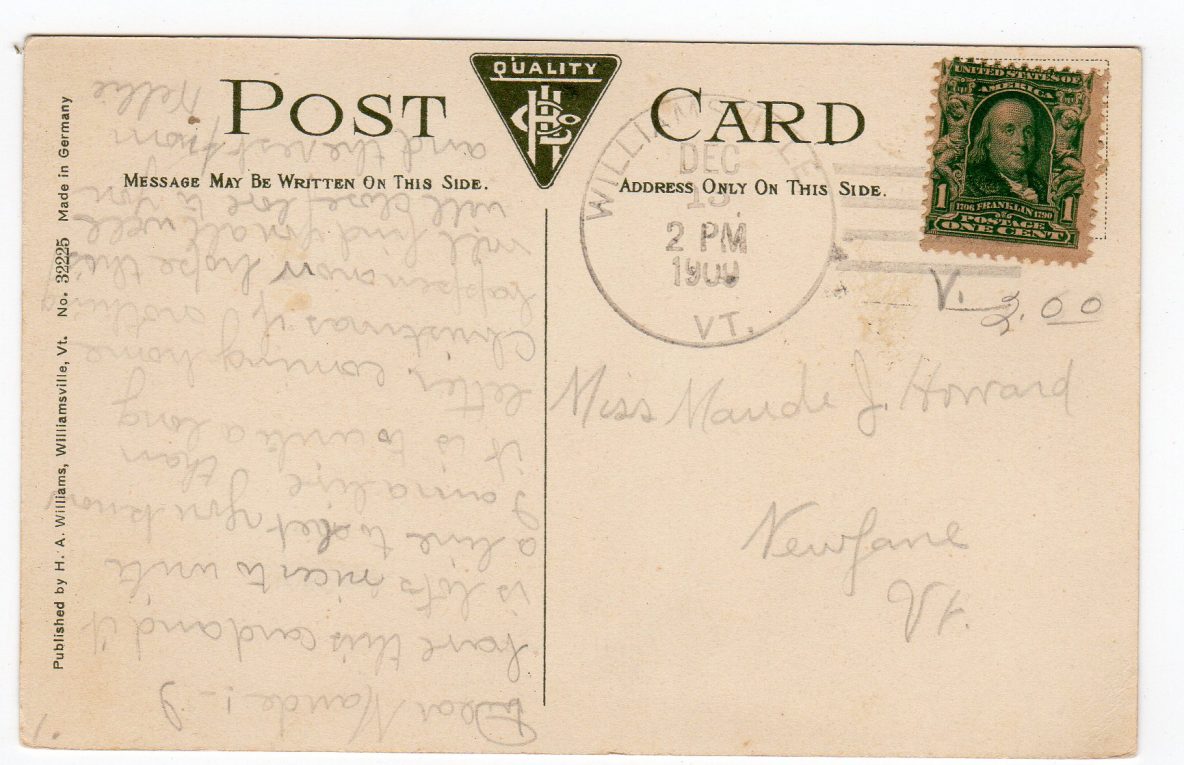 POST CARD
QUALITY
MESSAGE MAY BE WRITTEN ON THIS SIDE.
ADDRESS ONLY ON THIS SIDE.
UNITED STATES OF
AMERICA
1 1
1706 FRANKLIN 1790
POSTAGE
ONE CENT
WILLIAMSVILLE
DEC
13
2 PM
1909
VT.
V. 3.00
Miss Maude J. Howard
Newfane
Vt.
Published by H. A. Williams, Williamsville, Vt. No. 32225 Made in Germany
Dear Maude :- I
have this card and it
is lots nicer to write
a line to let you know
I am alive than
it is to write a long
letter, coming home
Christmas if nothing
happens now hope this
will find you well
will close love to you
and the rest from
Nellie